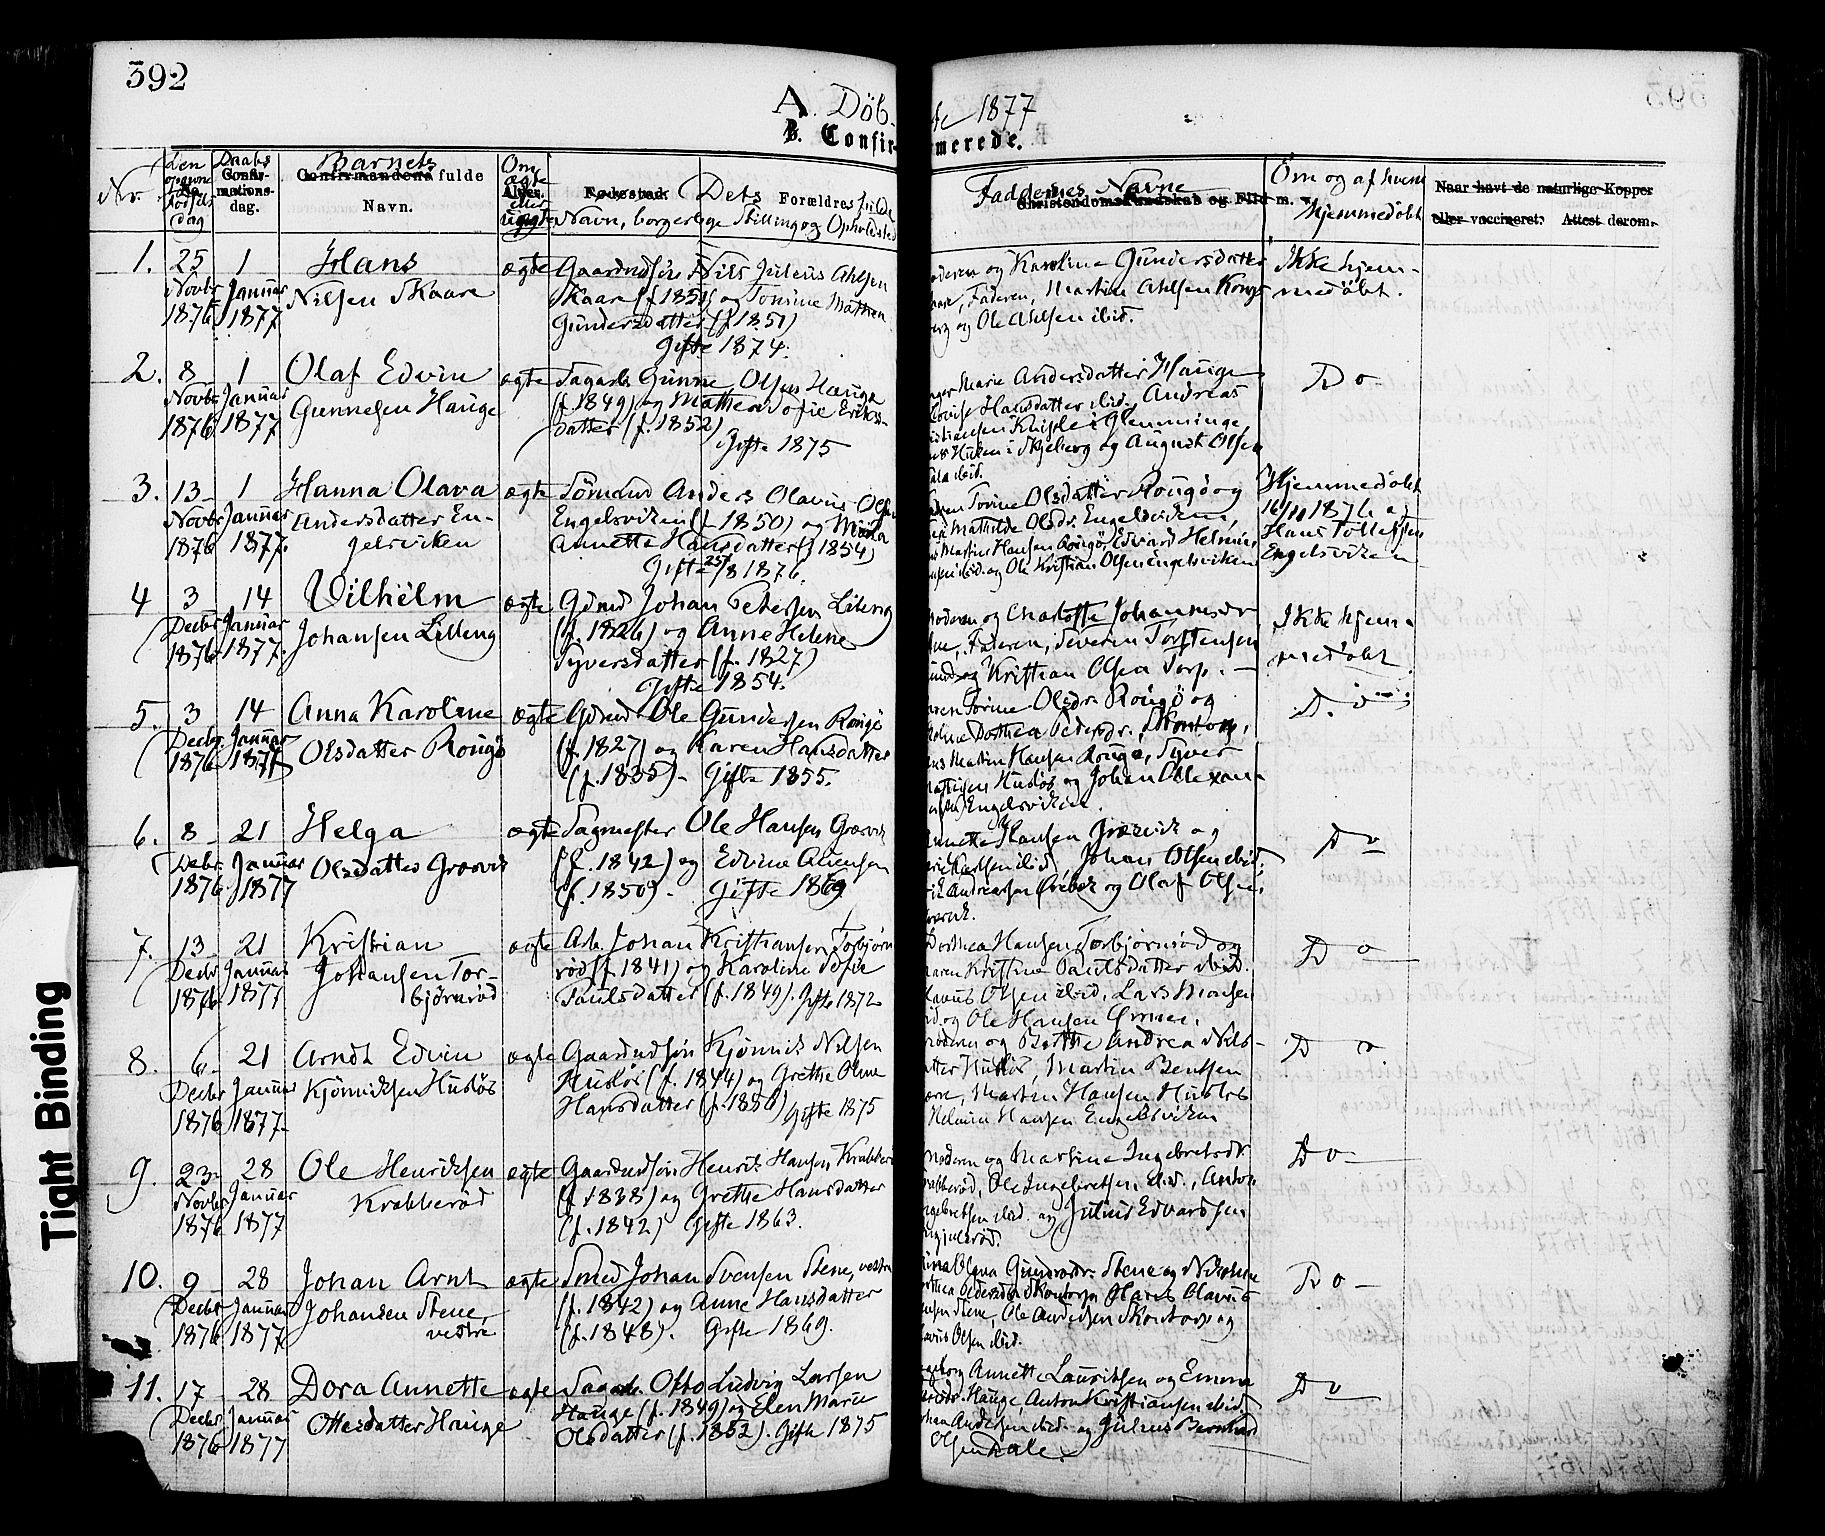 392
A. Döb- te 1877
B. Confir- merede.
Nr.
Den opgivne Fødselsdag
Daabs
Confirmations-dag.
Barnets
Confirmandens fulde
Navn.
Om ægte eller uægte
Alder.
Fødested. Dets Forældres fulde
Navn, borgerlige Stilling og Opholdssted
Faddernes Navne
Christendomskundskab og Flid m. m.
Om og af hvem
hjemmedöbt
Naar havt de naturlige Kopper
eller vaccineret. Attest derom.
1. 25 Novbr 1876
1 Januar 1877
Hans
Nilsen Skaare
ægte
Gaardmdsøn Nils Julius Ahlsen
Skaar (f. 1851) og Tomine Mathea
Gundersdatter (f. 1851)
Gifte 1874.
og Karoline Gundersdatter
Faderen, Martin Ahlsen Kongs-
berg og Ole Ahlsen ibid.
Ikke hjem-
medöbt.
2. 8 Novbr 1876
1 Januar 1877
Olaf Edvin
Gunnesen Hauge
ægte
Sagarb. Gunne Olsen Hauge
(f. 1849) og Mathea Sofie Eriks-
datter (f. 1852)
Gifte 1875
Marie Andersdatter Hauge
Hansdatter ibid. Andreas
Glemminge
i Skjeberg og August Olsen
ibid.
Do
3. 13 Novbr 1876
1 Januar 1877.
Hanna Olava
Andersdatter En-
gelsviken
ægte
Sömand Anders Olavus Olsen
Engelsviken (f. 1850) og Mina
Annette Hansdatter (f 1854)
Gifte 1876.
Torine Olsdatter Rougö og
Mathilde Olsdr. Engelsviken,
Martin Hansen Rougö, Edvard Helmin
ibid. og Ole Kristian Olsen Engelsviken
Hjemmedöbt
16/11 1876 af
Hans Tollefsen
Engelsviken
4 3 Decbr 1876
14 Januar 1877.
Vilhelm
Johansen Lilleng
ægte
Gdmd Johan Petersen Lileng
(f. 1826) og Anne Helene
Syversdatter (f. 1827)
Gifte 1854.
Moderen og Charlotte Johannesdr
Faderen, Severin Torstensen
og Kristian Olsen Torp.
Ikke hjem-
medöbt
5. 3 Decbr 1876
14 Januar 1877
Anna Karoline
Olsdatter Rougö
ægte
Gdmd Ole Gundersen Rougö
(f. 1827) og Karen Hansdatter
(f. 1835). Gifte 1855.
Torine Olsdr. Rougö og
Dorthea Pedersdr. Skontorp,
Martin Hansen Rougö, Syver
Huslös og Johan Alexan-
Engelsviken.
Do
6. 8 Decbr 1876
21 Januar 1877
Helga
Olsdatter Græsvik
ægte
Sagmester Ole Hansen Græsvik
(f. 1842) og Edvine Auensen
(f. 1850). Gifte 1869
Annette Hansen Græsvik og
Karlsen ibid. Johan Olsen ibid.
Andreassen Ørebek og Olaf Olsen
Græsvik.
Do
7. 13 Decbr 1876
21 Januar 1877
Kristian
Johansen Tor-
björnröd
ægte
Arb. Johan Kristiansen Torbjörn-
röd (f. 1841) og Karoline Sofie
Paulsdatter (f. 1849). Gifte 1872
Dorthea Hansen Torbjörnröd og
Karen Kristine Paulsdatter ibid.
Olavus Olsen ibid, Lars Monsen
ibid og Ole Hansen Ørmen.
Do
8. 6 Decbr 1876
21 Januar 1877.
Arndt Edvin
Kjönnicksen Huslös
ægte
Gaardmdsön Kjönnick Nilsen
Huslös (f. 1844) og Grethe Oline
Hansdatter (f. 1850) Gifte 1875
Moderen og Berthe Andrea Nils-
datter Huslös, Martin Bentsen
Martin Hansen Huslös
Helmin Hansen Engelsviken
Do
9. 23 Novbr 1876
28 Januar 1877
Ole Henriksen
Krabberöd
ægte
Gaardmdsön Henrik Hansen Krabberöd
(f. 1838) og Grethe Hansdatter
(f. 1842) Gifte 1863.
Moderen og Martine Ingebretsdr
Krabberöd, Ole Ingebretsen ibid., Anton
Ingebretsen ibid. og Julius Edvardsen
Do
10. 9 Decbr 1876
28 Januar 1877
Johan Arnt
Johansen Stene,
vestre
ægte
Smed Johan Svensen Stene, vestre
(f. 1842) og Anne Hansdatter
(f. 1848). Gifte 1869.
Olena Gundersdr. Stene og Nikoline
Dorthea Pedersdatter Skontorp Hans Olavus
Stene, Ole Andersen Skontorp og
Olavus Olsen ibid.
Do
11. 17 Decbr 1876
28 Januar 1877
Dora Annette
Ottesdatter Hauge
ægte
Sagarb. Otto Ludvig Larsen
Hauge (f. 1849) og Elen Marie
Olsdatter (f. 1852). Gifte 1875
Ingeborg Annette Lauritsen og Emma
Hauge Anton Kristiansen ibid.
Johan Andersen ibid. og Julius Bernhard
Olsen Dale.
Do
Tight Binding